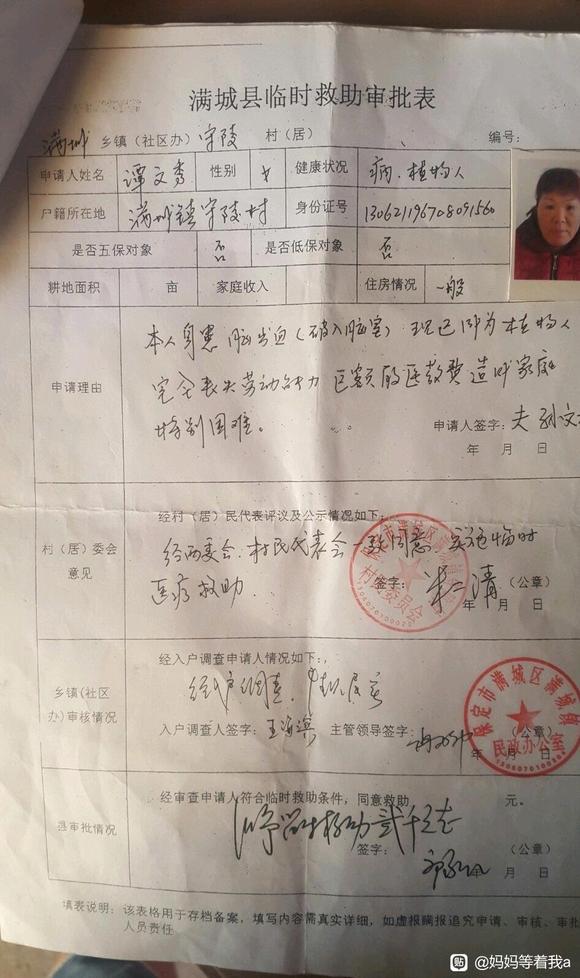 满城县临时救助审批表
满城 乡镇（社区办）守陵 村（居） 编号：
申请人姓名 谭文秀 性别 女 健康状况 病.植物人
户籍所在地 满城镇守陵村 身份证号 130621196708091560
是否五保对象 否 是否低保对象 否
耕地面积 亩 家庭收入 住房情况 一般
申请理由
本人身患脑出血（破入脑室）现已即为植物人
完全丧失劳动能力 巨额的医药费造成家庭
特别困难。
申请人签字：夫 孙文
年 月 日
村（居）委会
意见
经村（居）民代表评议及公示情况如下：
经两委会.村民代表会一致同意 实施临时
医疗救助.
签字： （公章）
年 月 日
保定市满城区满城镇
村民委员会
乡镇(社区
办)审核情况
经入户调查申请人情况如下：,
经入户调查，
入户调查人签字： 主管领导签字： （公章）
年 月 日
保定市满城区满城镇
民政办公室
县审批情况
经审查申请人符合临时救助条件，同意救助 元。
签字： （公章）
年 月 日
填表说明：该表格用于存档备案，填写内容需真实详细，如虚报瞒报追究申请、审核、审批
人员责任
贴 @妈妈等着我a